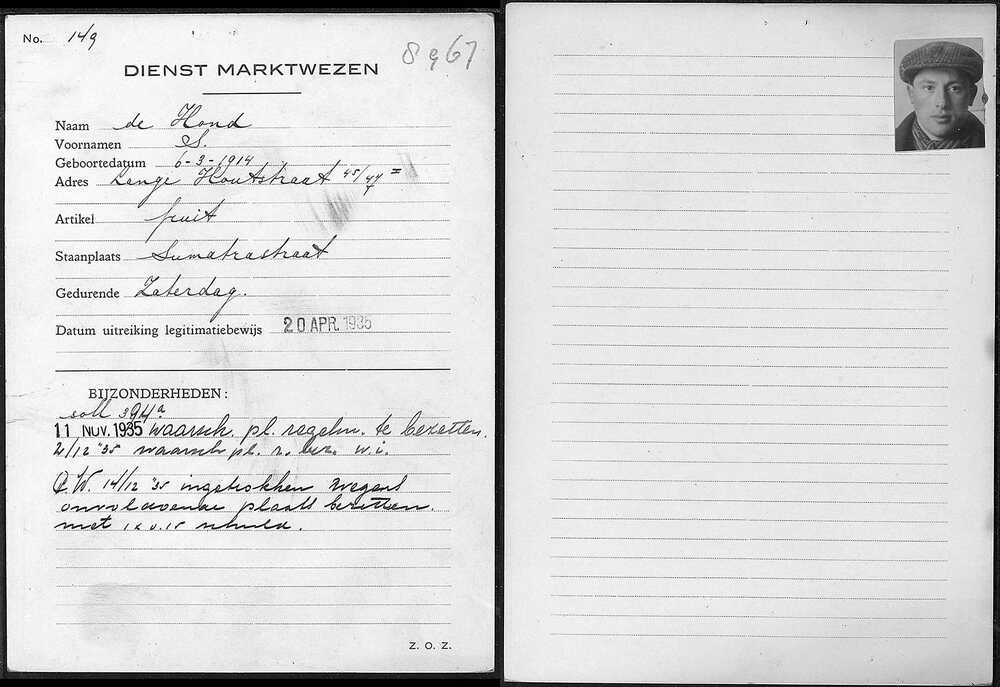 No. 149
8967
DIENST MARKTWEZEN
Naam de Hond
Voornamen S.
Geboortedatum 6-3-1914
Adres Lange Houtstraat 45/47 II
Artikel fruit
Staanplaats Sumatrastraat
Gedurende Zaterdag.
Datum uitreiking legitimatiebewijs 20 APR. 1935
BIJZONDERHEDEN:
soll 394a
11 NOV. 1935 waarsch. pl. regelm. te bezetten.
2/12 '35 waarsch pl. r. bez. w.i.
C.W. 14/12 '35 ingetrokken wegens
onvoldoende plaats bezetten.
met schuld.
Z. O. Z.